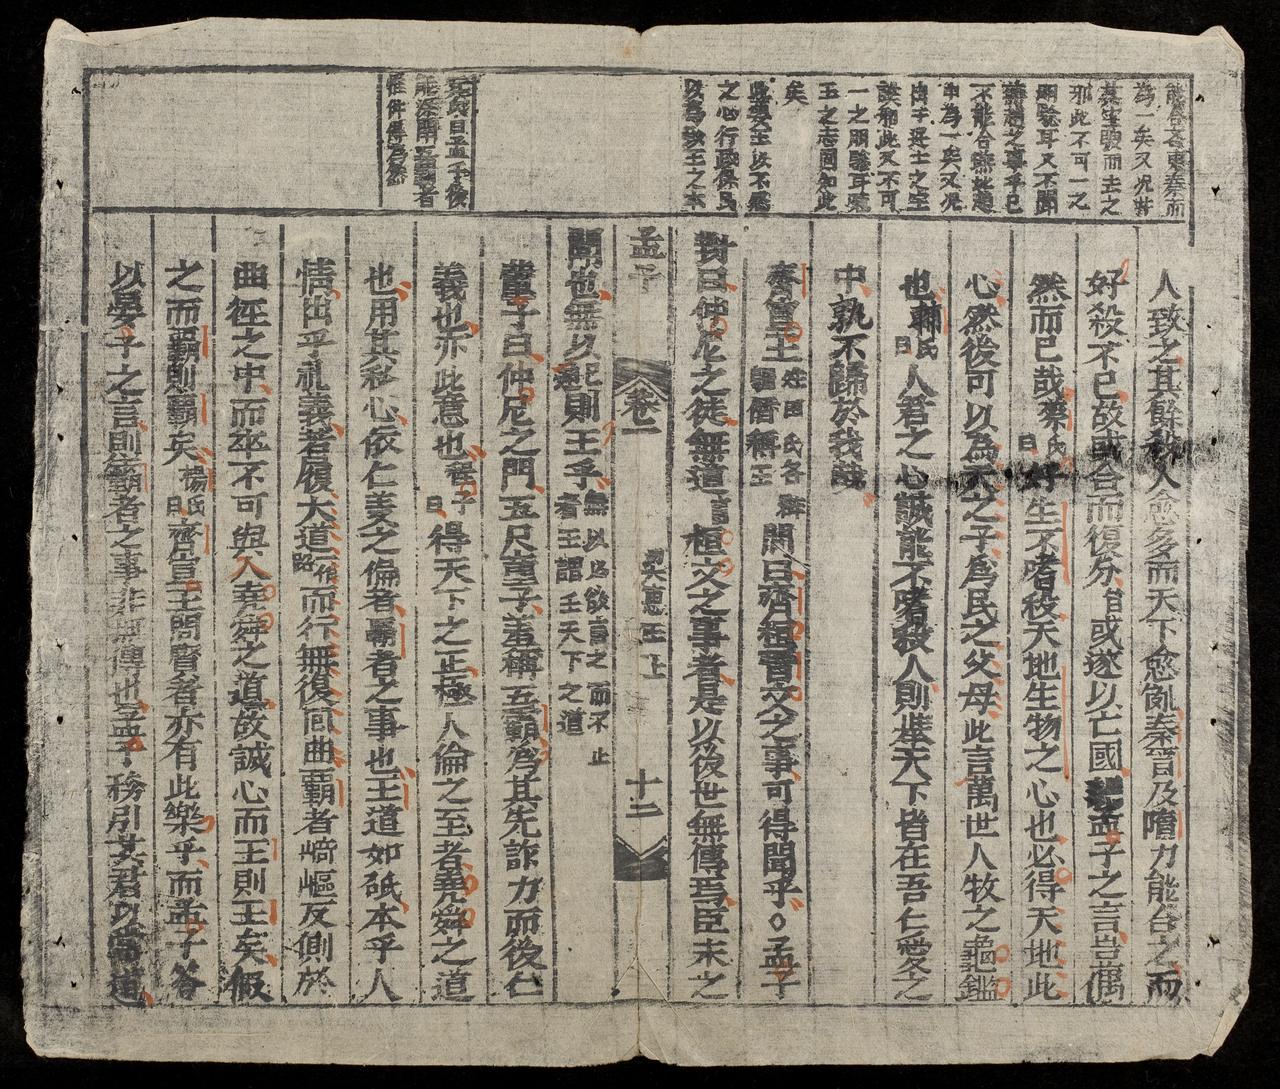 能合各東秦而
為一矣又況皆
其聖賢而去之
邪此不可一之
明驗耳又不聞
不能合燕趙
中為一矣又況
談和此又不可
一之明驗耳噫
王之志固如此
矣
之心行政保民
以為致王之本
人致之其餘殺人愈多而天下愈亂秦晉及隋力能合之而
好殺不已故或合而復分或遂以亡國孟子之言豈偶
然而已哉蔡氏曰好生不嗜殺天地生物之心也必得天地此
心然後可以為天之子為民之父母此言萬世人牧之龜鑑
也輔氏曰人君之心誠能不嗜殺人則舉天下皆在吾仁愛之
中孰不歸於我哉
齊宣王姓田氏名辟疆僭稱王問曰齊桓晉文之事可得聞乎○孟子
對曰仲尼之徒無道桓文之事者是以後世無傳焉臣未之
孟子
卷一
梁惠王上
十二
聞也無以則王乎無以必欲言之而不止者王謂王天下之道
董子曰仲尼之門五尺童子羞稱五霸為其先詐力而後仁
義也亦此意也程子曰得天下之正極人倫之至者堯舜之道
也用其私心依仁義之偏者霸者之事也王道如砥本乎人
情出乎礼義若履大道路而行無復回曲霸者崎嶇反側於
曲徑之中而卒不可與入堯舜之道故誠心而王則王矣假
之而霸則霸矣楊氏曰齊宣王問賢者亦有此樂乎而孟子答
以晏子之言則霸者之事非無傳也孟子務引其君以當道
能深闢五霸者